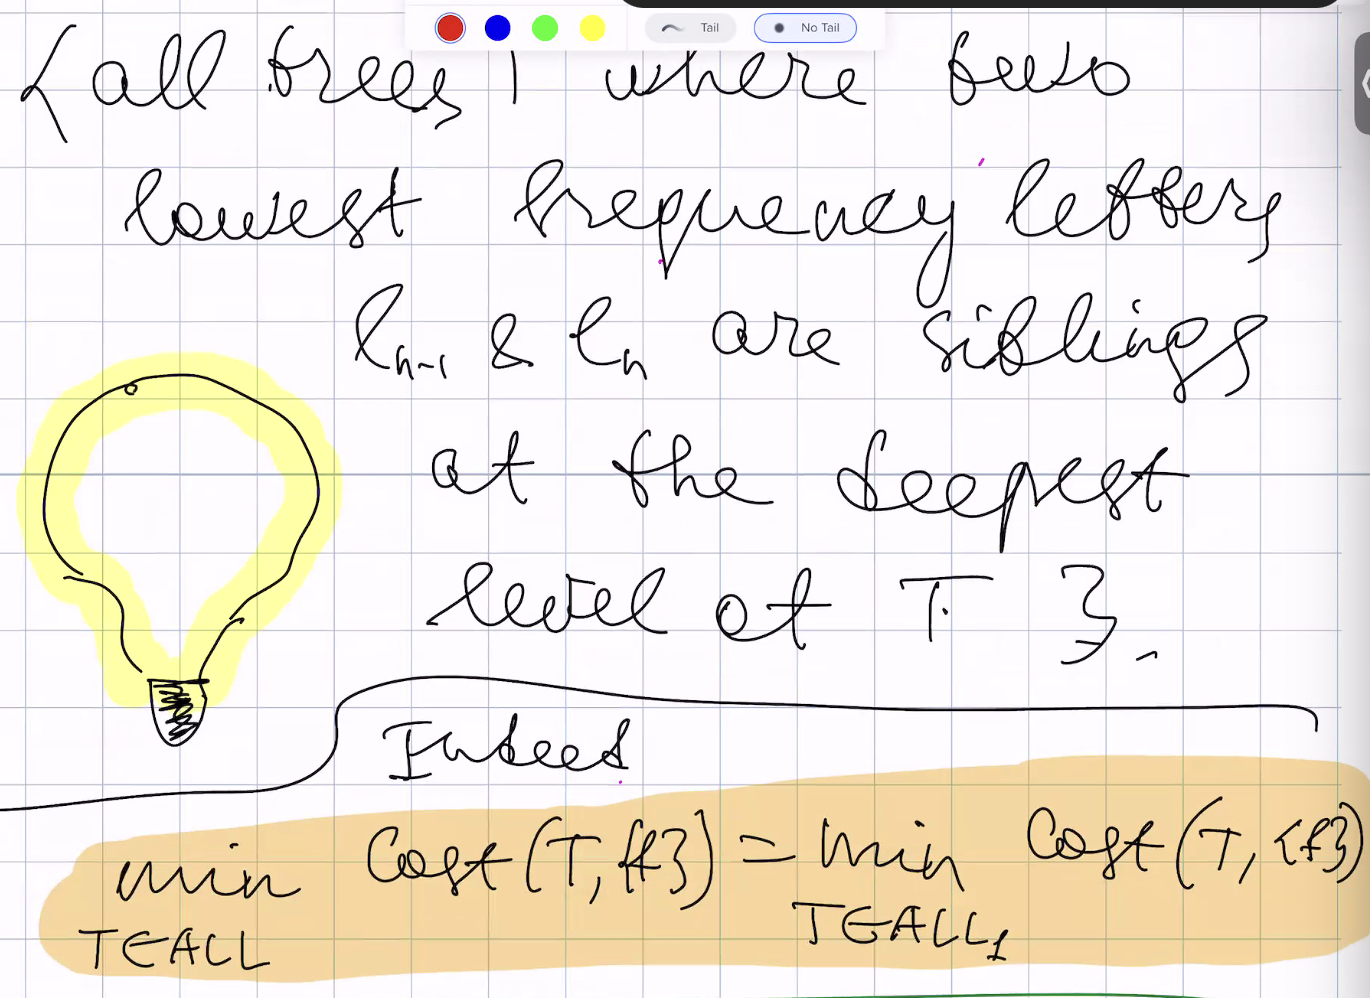 Tail No Tail
{all trees | where two
lowest frequency letters
l_{n-1} & l_n are siblings
at the deepest
level at T }.
Indeed
min Cost(T,{f}) = min Cost(T,{f})
T∈ALL T∈ALL_1